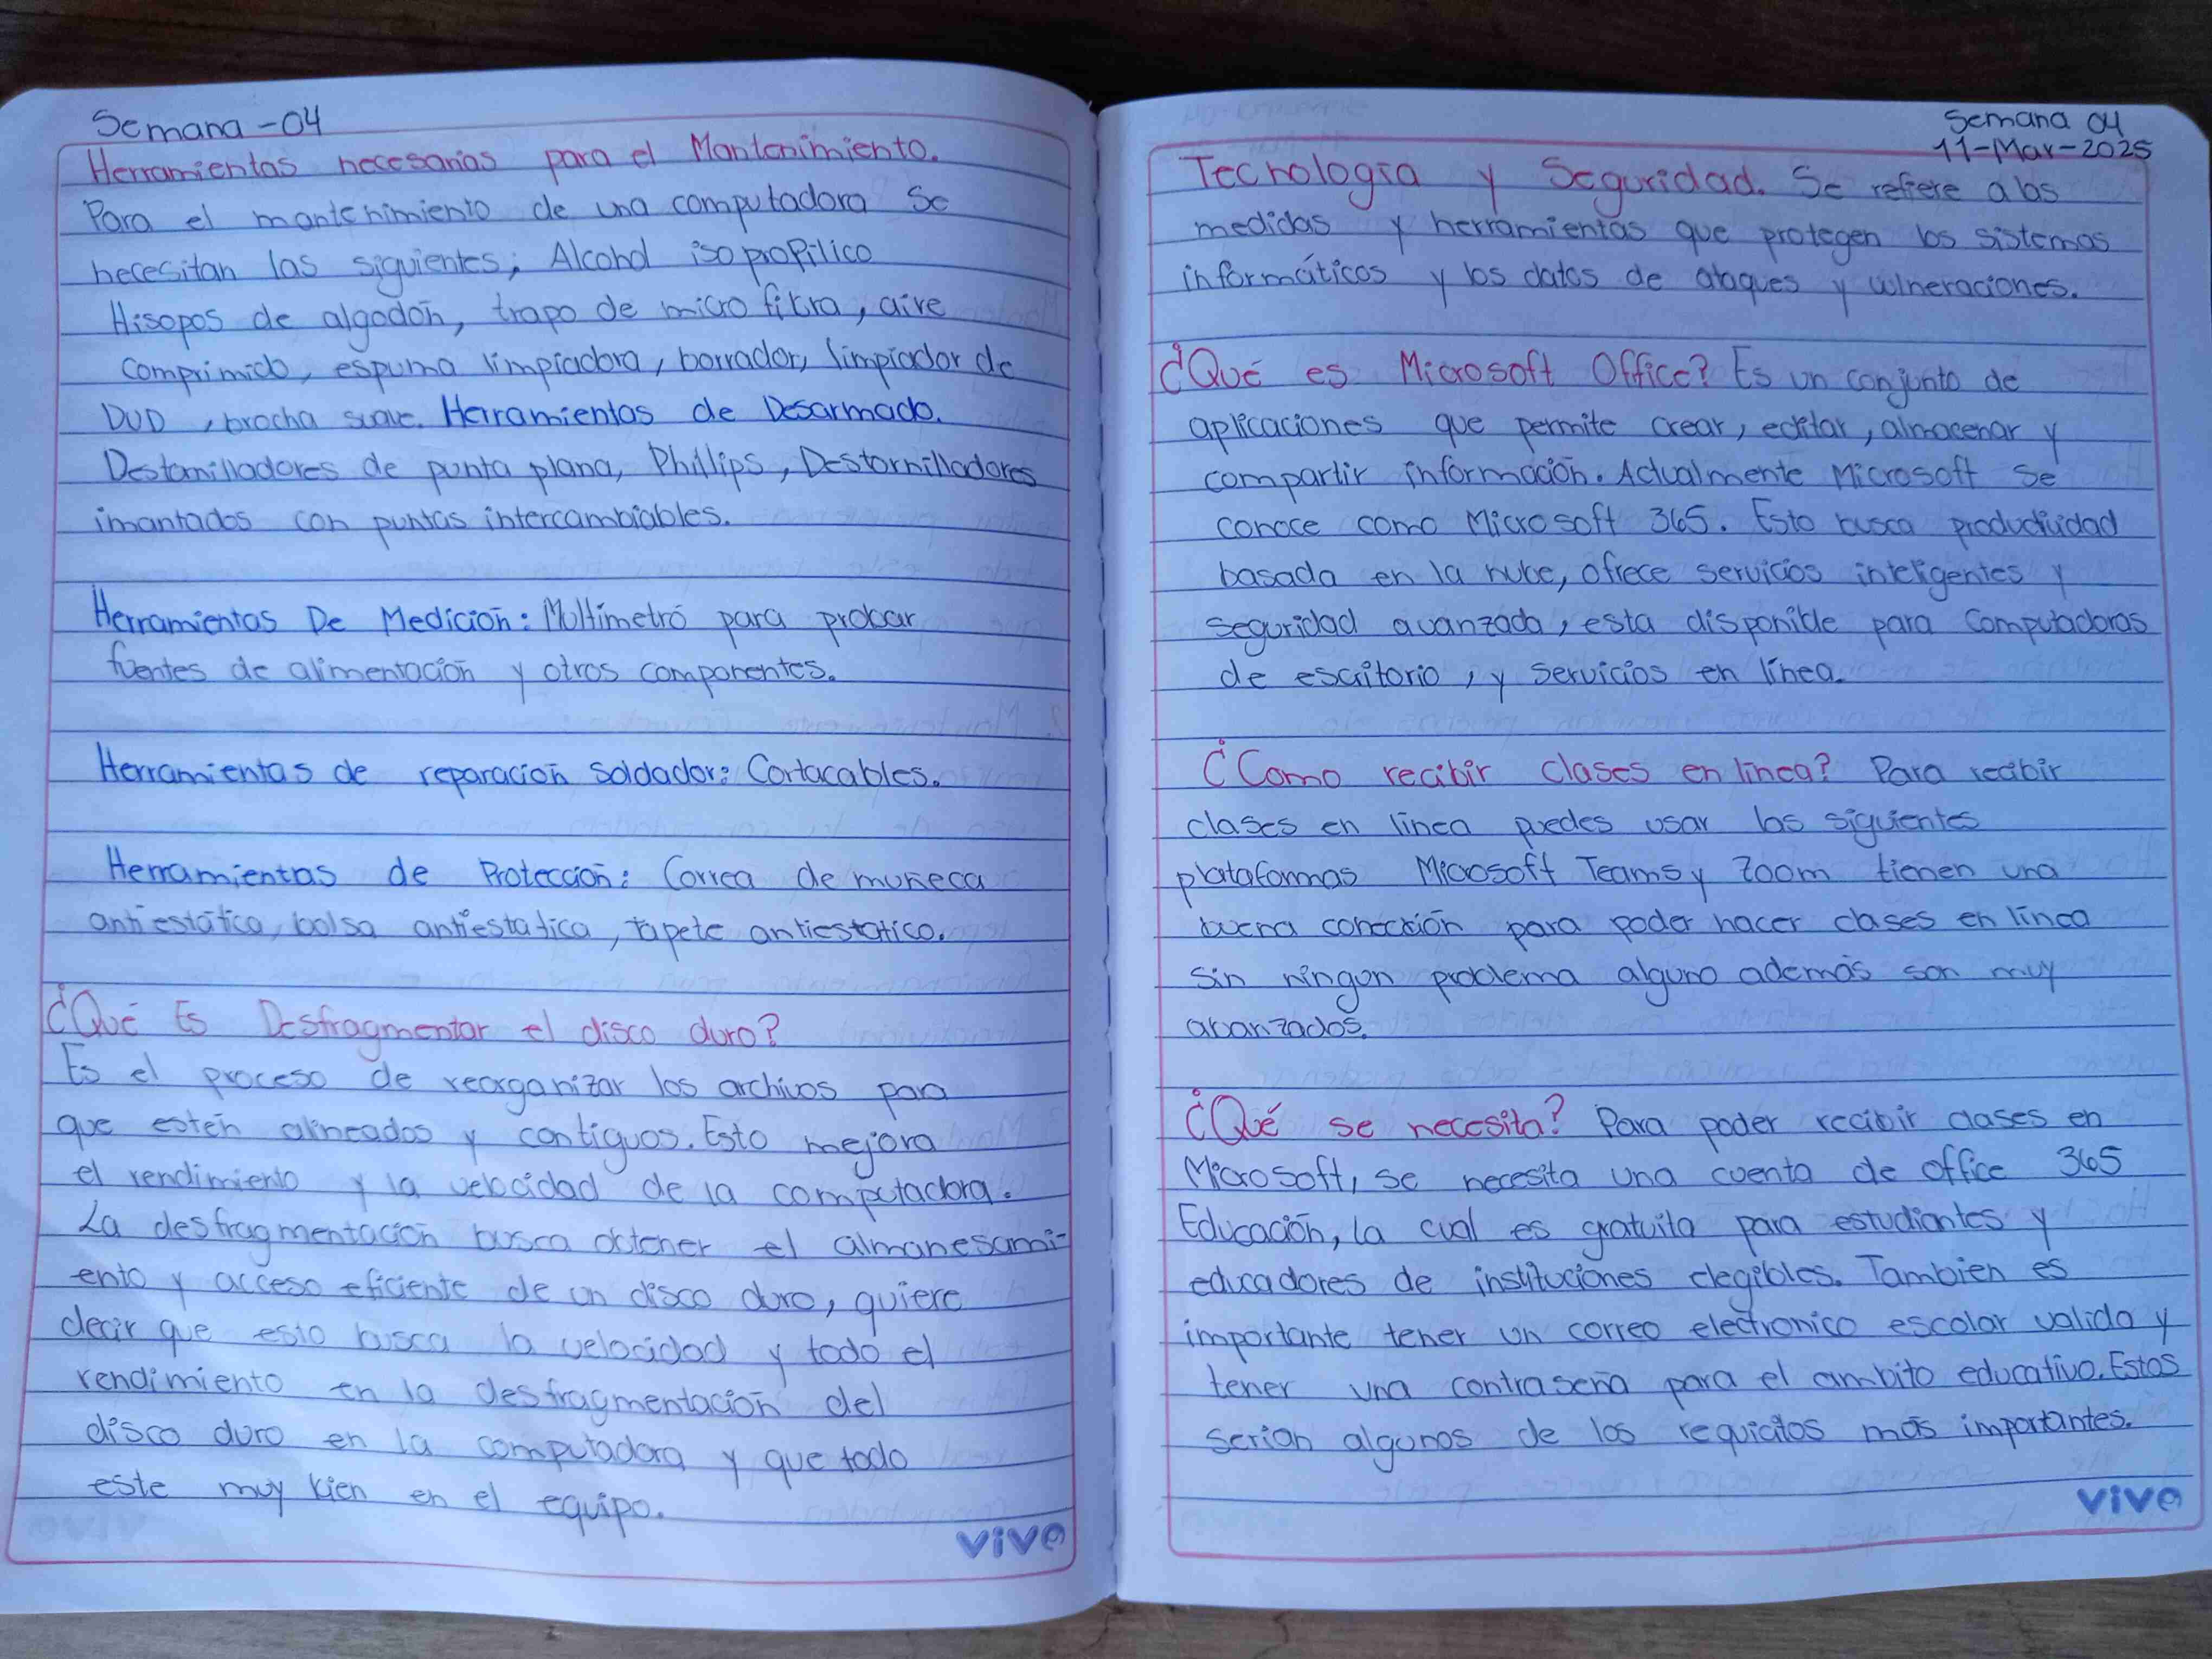 Semana - 04
Herramientas necesarias para el Mantenimiento.
Para el mantenimiento de una computadora se
necesitan las siguientes; Alcohol isopropilico
Hisopos de algodón, trapo de micro fibra, aire
comprimido, espuma limpiadora, borrador, limpiador de
DVD, brocha suave. Herramientas de Desarmado.
Destornilladores de punta plana, Phillips, Destornilladores
imantados con puntas intercambiables.
Herramientas De Medición: Moltímetró para probar
fuentes de alimentación y otros componentes.
Herramientas de reparación Soldador: Cortacables.
Herramientas de Protección: Correa de muñeca
antiestática, bolsa antiestatica, tapete antiestatico.
¿Qué Es Desfragmentar el disco duro?
Es el proceso de reorganizar los archivos para
que estén alineados y contiguos. Esto mejora
el rendimiento y la velocidad de la computadora.
La desfragmentación busca obtener el almanesami-
ento y acceso eficiente de un disco duro, quiere
decir que esto busca la velocidad y todo el
rendimiento en la desfragmentación del
disco duro en la computadora y que todo
este muy bien en el equipo.
vive
Semana 04
11-Mar-2025
Tecnología y Seguridad. Se refiere a las
medidas y herramientas que protegen los sistemas
informáticos y los datos de ataques y vulneraciones.
¿Qué es Microsoft Office? Es un conjunto de
aplicaciones que permite crear, editar, almacenar y
compartir información. Actualmente Microsoft se
conoce como Microsoft 365. Esto busca productividad
basada en la nube, ofrece servicios inteligentes y
seguridad avanzada, esta disponible para Computadoras
de escritorio, y servicios en línea.
¿Como recibir clases en linea? Para recibir
clases en linea puedes usar las siguientes
plataformas Microsoft Teams y Zoom tienen una
buena conección para poder hacer clases en línea
sin ningun problema alguno además son muy
avanzados.
¿Qué se necesita? Para poder recibir clases en
Microsoft, se necesita una cuenta de office 365
Educación, la cual es gratuita para estudiantes y
educadores de instituciones elegibles. Tambien es
importante tener un correo electronico escolar valido y
tener una contraseña para el ambito educativo. Estos
serian algunos de los requicitos más importantes.
vive